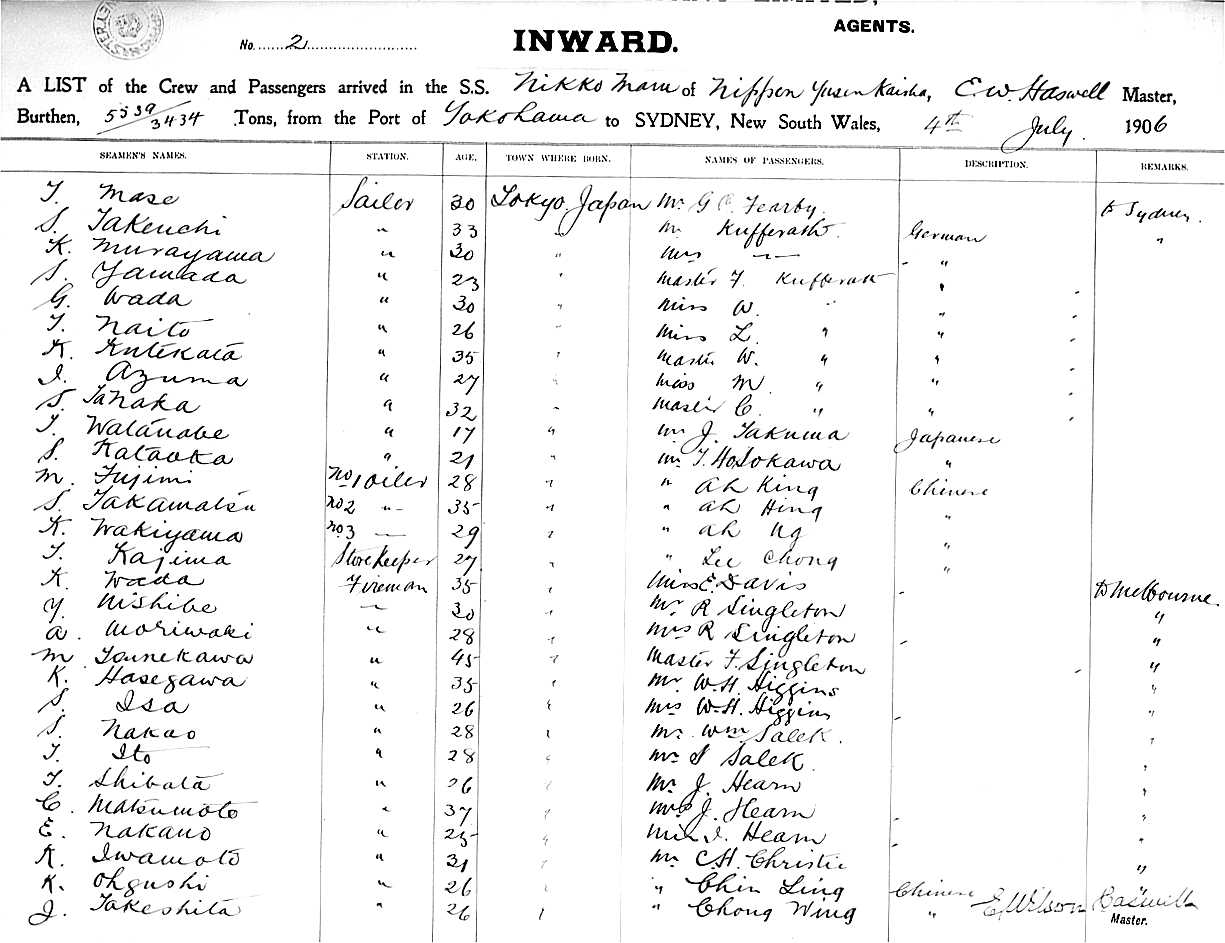 LIMITED,
AGENTS.
No. 2
INWARD.
A LIST of the Crew and Passengers arrived in the S.S. Nikko Maru of Nippon Yusen Kaisha, E.W. Haswell Master,
Burthen, 5539/3434 Tons, from the Port of Yokohama to SYDNEY, New South Wales, 4th July 1906
SEAMEN'S NAMES. STATION. AGE. TOWN WHERE BORN. NAMES OF PASSENGERS. DESCRIPTION. REMARKS.
T. Mase Sailer 30 Tokyo Japan Mr G.C. Fearby. to Sydney.
S. Takeuchi " 33 " Mr Kufferath. German "
K. Murayama " 30 " Mrs — "
S. Yamada " 23 " Master F. Kufferath "
G. Wada " 30 " Miss W. " "
T. Naito " 26 " Miss L. " "
K. Kutekata " 35 " Master W. " "
I. Azuma " 27 " Miss M. " "
S. Tanaka " 32 " Master C. " "
T. Watanabe " 17 " Mr J. Takuma Japanese
S. Kataoka " 21 Mr T. Hosokawa "
M. Fujimi No 1 oiler 28 " " Ah King Chinese
S. Takamatsu No 2 " 35 " " Ah Hing "
K. Wakiyama No 3 — 29 " " Ah Ng "
T. Kajima Storekeeper 27 " " Lee Chong "
K. Wada Fireman 35 " Miss E. Davis to Melbourne.
Y. Nishibe " 30 " Mr R Singleton "
A. Moriwaki " 28 " Mrs R Singleton "
M. Tsunekawa " 45 " Master F. Singleton "
K. Hasegawa " 35 " Mr W.H. Higgins "
S. Isa " 26 " Mrs W.H. Higgins "
S. Nakao " 28 " Mr Wm Salek. "
T. Ito " 28 " Mr S Salek. "
T. Shibata " 26 " Mr J. Hearn "
C. Matsumoto " 37 " Mrs J. Hearn "
E. Nakano " 25 " Miss I. Hearn "
K. Iwamoto " 31 " Mr C.H. Christie "
K. Ohgushi " 26 " " Chin Ling Chinese
J. Takeshita " 26 " " Chong Wing " E. Wilson
Master.